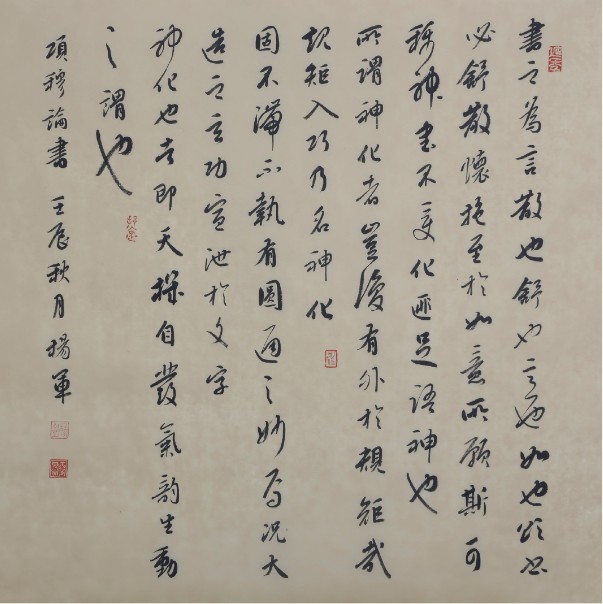 書之為言散也舒也意也如也欲書
必舒散懷抱至於如意所願斯可
稱神書不變化匪足語神也
所謂神化者豈復有外於規矩哉
規矩入巧乃名神化
固不滯不執有圓通之妙焉況大
造之玄功宣泄於文字
神化也者即天機自發氣韻生動
之謂也
項穆論書 壬辰秋月 楊軍